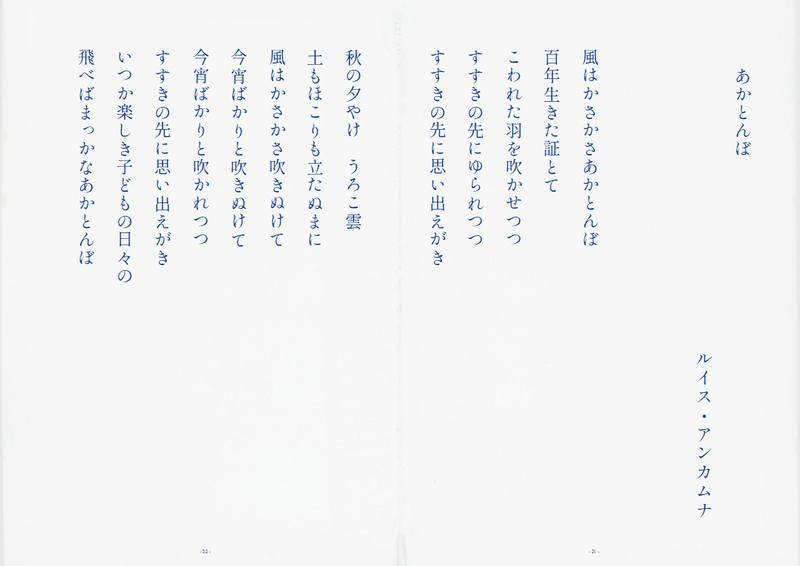 あかとんぼ
ルイス・アンカムナ
風はかさかさあかとんぼ
百年生きた証とて
こわれた羽を吹かせつつ
すすきの先にゆられつつ
すすきの先に思い出えがき
- 21 -
秋の夕やけ　うろこ雲
土もほこりも立たぬまに
風はかさかさ吹きぬけて
今宵ばかりと吹きぬけて
今宵ばかりと吹かれつつ
すすきの先に思い出えがき
いつか楽しき子どもの日々の
飛べばまっかなあかとんぼ
- 22 -